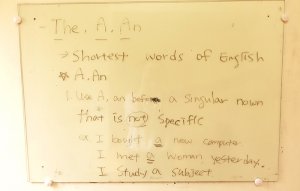 - The, A, An
→ Shortest words of English
* A, An
1. Use A, an before a singular noun
that is not specific
I bought a new computer
I met a woman yesterday.
I study a subject